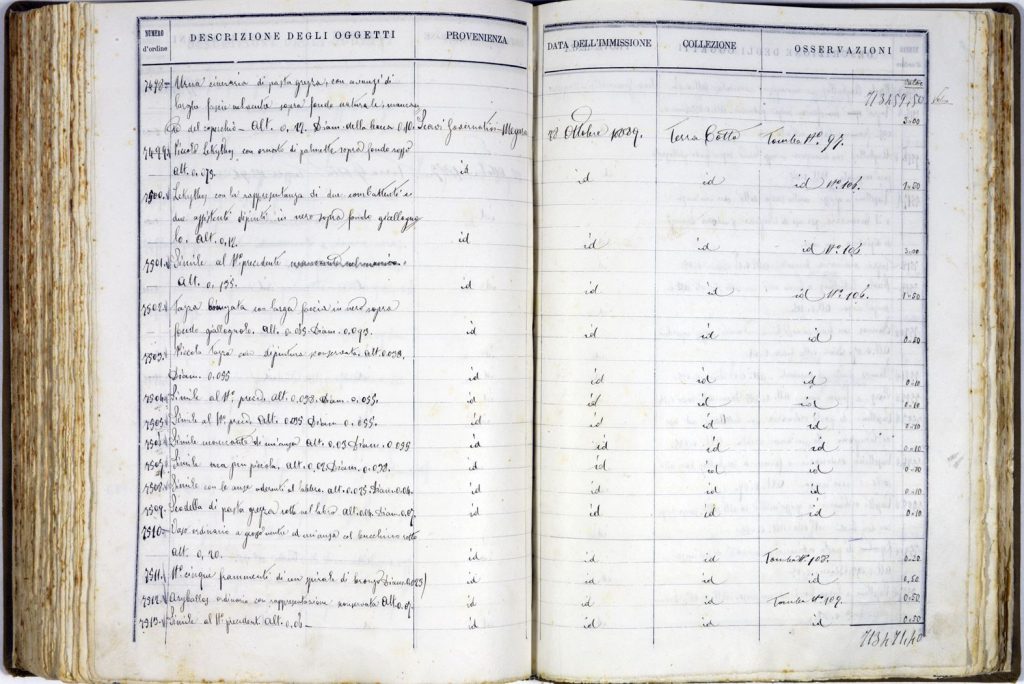 NUMERO d'ordine DESCRIZIONE DEGLI OGGETTI PROVENIENZA DATA DELL'IMMISSIONE COLLEZIONE OSSERVAZIONI
713459,50
7498 Urna cineraria di pasta grezza, con avanzi di
larghe fascie sopra fondo naturale, mancan
te del coperchio - Alt. 0,12. Diam. della bocca 0,10. Scavi Governativi - Megara 22 Ottobre 1889. Terra Cotta Tomba No. 97. 3=00
7499 Piccolo Lekythos con ornato di palmette sopra fondo rosso
Alt. 0,073. id id id id No. 106. 1=50
7500 Lekythos con la rappresentanza di due combattenti e
due assistenti dipinti in nero sopra fondo giallogno
lo. Alt. 0,12. id id id id No. 106 3=00
7501 Simile al No. precedente
Alt. 0,135. id id id id No. 106. 1=50
7502 Tazza con larga fascia in nero sopra
fondo giallognolo. Alt. Diam. 0,093. id id id id 0=20
7503 Piccola Tazza con dipintura conservata. Alt. 0,038.
Diam. 0,055 id id id id 0=10
7504 Simile al No. preced. Alt. 0,033. Diam. 0,055. id id id id 0=10
7505 Simile al No. preced. Alt. 0,035 Diam. 0,055. id id id id 0=10
7506 Simile mancante di un'ansa Alt. 0,03 Diam. 0,055 id id id id 0=10
7507 Simile ma più piccola. Alt. 0,02 Diam. 0,038. id id id id 0=20
7508 Simile con le anse aderenti al labbro. Alt. 0,025 Diam. 0,04. id id id id 0=10
7509 Scodella di pasta grezza rotta nel labro Alt. 0,04. Diam. 0,07. id id id id 0=10
7510 Vaso ordinario ad un'ansa col rotto
Alt. 0,20. id id id Tomba No. 108. 0=20
7511 No. cinque frammenti di una spirale di bronzo Diam. 0,025 id id id id 0,50
7512 Aryballos ordinario con rappresentazione conservata Alt. 0,07. id id id Tomba No. 109. 0=50
7513 Simile al No. precedent. Alt. 0,06 - id id id id 0=50
713471,40